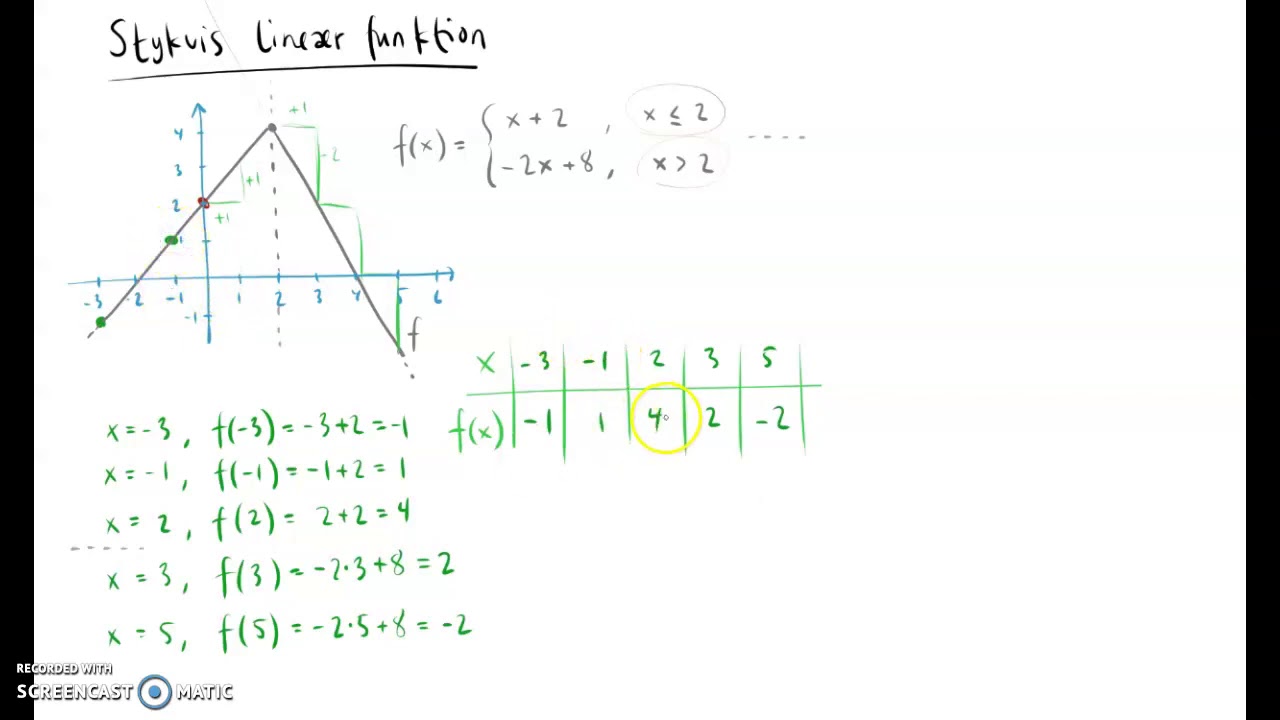 Stykvis lineær funktion
f(x) = { x + 2 , x ≤ 2
-2x + 8 , x > 2
+1
-2
+1
+1
4
3
2
1
-1
-3 -2 -1 1 2 3 4 5 6
f
x -3 -1 2 3 5
f(x) -1 1 4 2 -2
x = -3 , f(-3) = -3+2 = -1
x = -1 , f(-1) = -1+2 = 1
x = 2 , f(2) = 2+2 = 4
x = 3 , f(3) = -2·3+8 = 2
x = 5 , f(5) = -2·5+8 = -2
RECORDED WITH
SCREENCAST MATIC